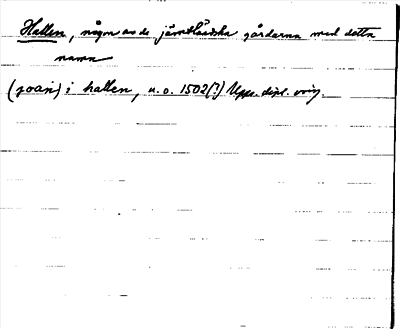 Hallen, någon av de jämtländska gårdarna med detta
namn
(joan) i hallen, u.o. 1502(?) Upps. dipl. orig.